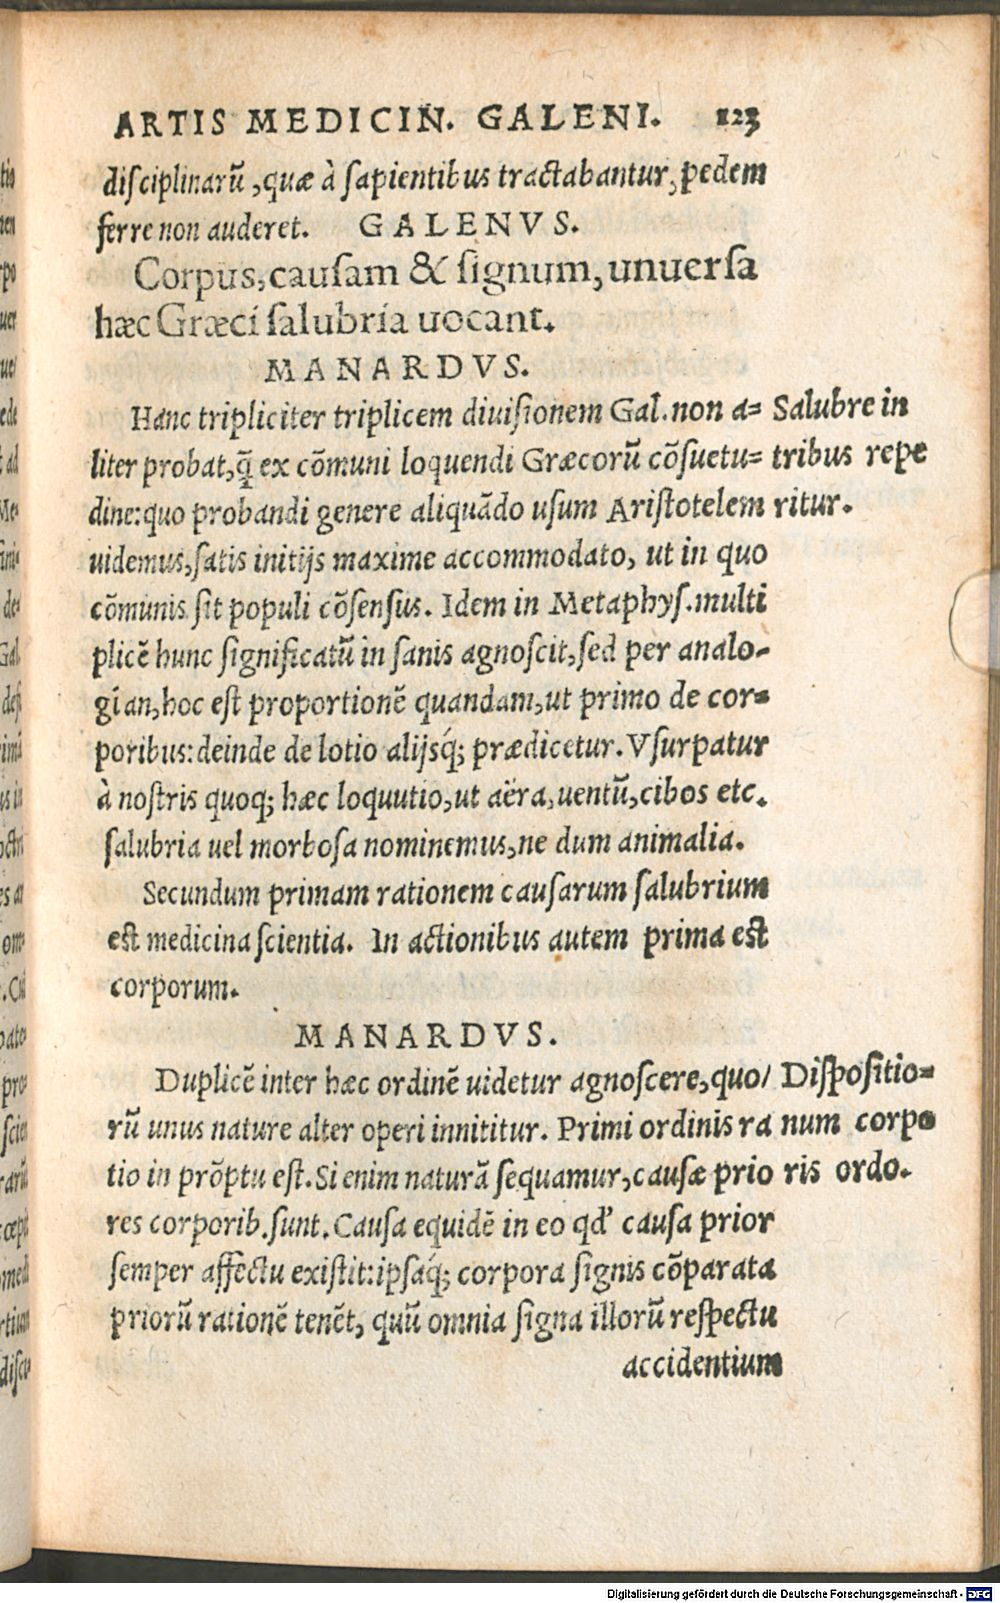 ARTIS MEDICIN. GALENI. 123
disciplinarũ, quæ à sapientibus tractabantur, pedem
ferre non auderet. GALENVS.
Corpus, causam & signum, unuersa
hæc Græci salubria uocant.
MANARDVS.
Hanc tripliciter triplicem diuisionem Gal. non a=
liter probat, q̃ ex cõmuni loquendi Græcorũ cõsuetu=
dine: quo probandi genere aliquãdo usum Aristotelem
uidemus, satis initijs maxime accommodato, ut in quo
cõmunis sit populi cõsensus. Idem in Metaphys. multi
plicẽ hunc significatũ in sanis agnoscit, sed per analo-
gian, hoc est proportionẽ quandam, ut primo de cor=
poribus: deinde de lotio alijsq́; prædicetur. Vsurpatur
à nostris quoq; hæc loquutio, ut aëra, uentũ, cibos etc.
salubria uel morbosa nominemus, ne dum animalia.
Salubre in
tribus repe
ritur.
Secundum primam rationem causarum salubrium
est medicina scientia. In actionibus autem prima est
corporum.
MANARDVS.
Duplicẽ inter hæc ordinẽ uidetur agnoscere, quo/
rũ unus nature alter operi innititur. Primi ordinis ra
tio in prõptu est. Si enim naturã sequamur, causæ prio
res corporib. sunt. Causa equidẽ in eo qd' causa prior
semper affectu existit: ipsaq́; corpora signis cõparata
priorũ rationẽ tenẽt, quũ omnia signa illorũ respectu
accidentium
Dispositio=
num corpo
ris ordo.
Digitalisierung gefördert durch die Deutsche Forschungsgemeinschaft - DFG